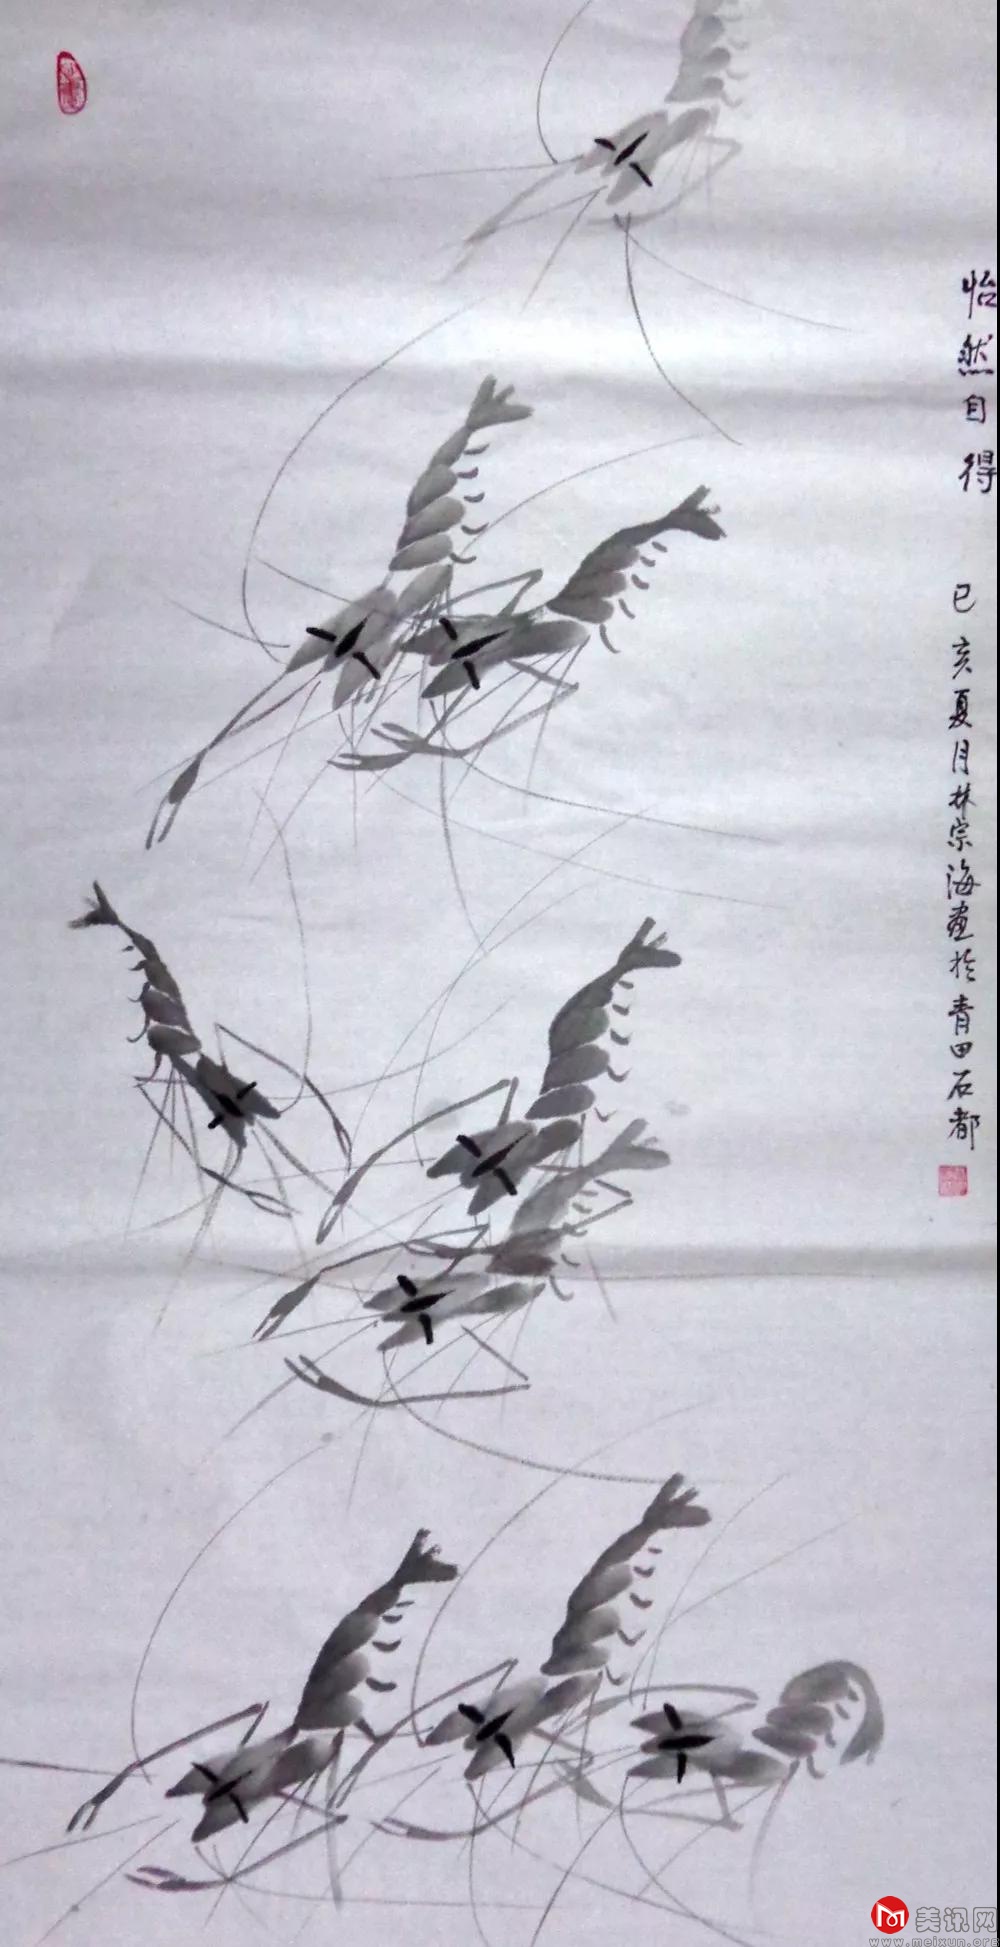 怡然自得
己亥夏月林宗海画於青田石都
美讯网
www.meixun.org